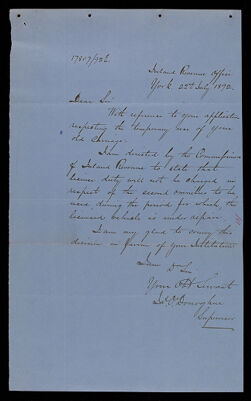 17817/126.
Inland Revenue Office
York 22nd July 1890.
Dear Sir
With reference to your application
respecting the temporary use of your
old Carriage.
I am directed by the Commissioners
of Inland Revenue to state that
license duty will not be charged in
respect of the second omnibus to be
used during the period for which the
licensed vehicle is under repair.
I am very glad to convey this
decision in favour of your Institution
I am Dr Sir
Your Obt Servant
O'Donoghue
Supervisor